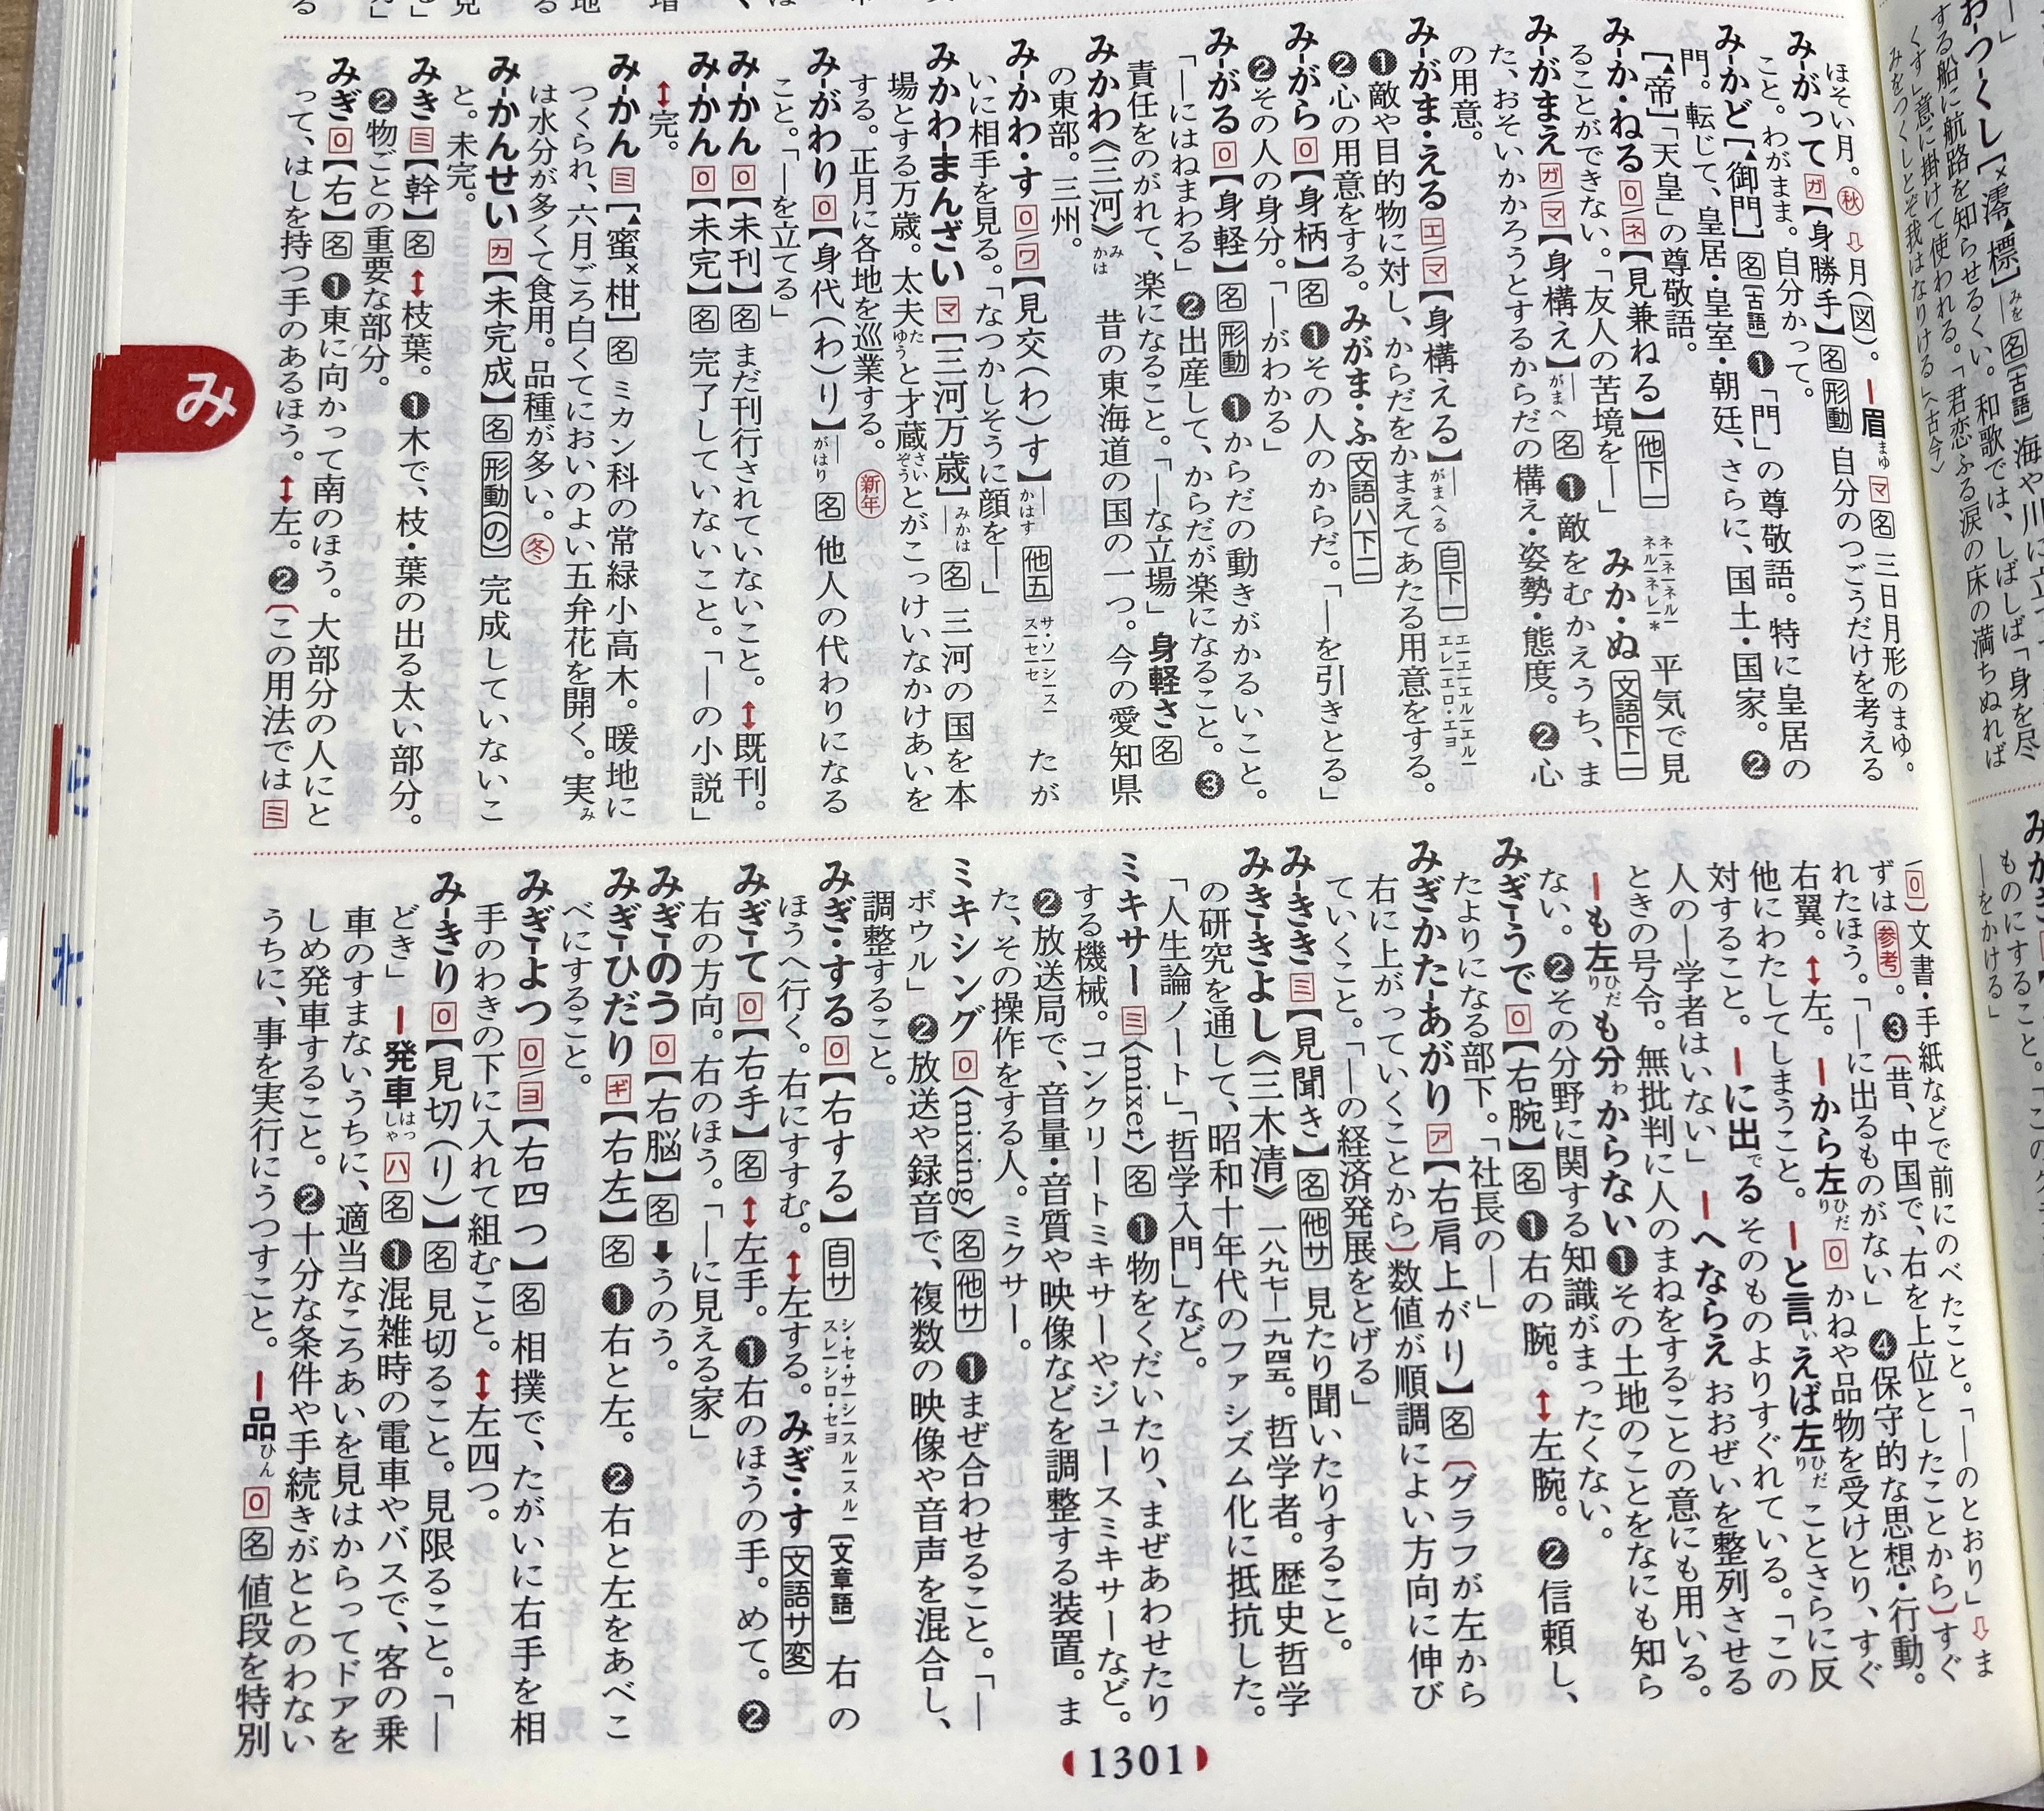 ほそい月。㊙秋⇩月(図)。━眉まゆ マ 名 三日月形のまゆ。
み‐がって ガ【身勝手】名 形動 自分のつごうだけを考える
こと。わがまま。自分かって。
み‐かど[▲御門]名[古語]❶「門」の尊敬語。特に皇居の
門。転じて、皇居・皇室・朝廷、さらに、国土・国家。❷
[▲帝]「天皇」の尊敬語。
み‐か・ねる 0/ネ【見兼ねる】他下一 ネ―ネ―ネル―ネル―ネレ―* 平気で見
ることができない。「友人の苦境を―」 みか・ぬ 文語下二
み‐がまえ ガ/マ【身構え】―がまへ 名 ❶敵をむかえうち、ま
た、おそいかかろうとするからだの構え・姿勢・態度。❷心
の用意。
み‐がま・える エ/マ【身構える】―がまへる 自下一 エ―エ―エル―エル―エレ―エロ・エヨ
❶敵や目的物に対し、からだをかまえてあたる用意をする。
❷心の用意をする。みがま・ふ 文語ハ下二
み‐がら 0【身柄】名 ❶その人のからだ。「―を引きとる」
❷その人の身分。「―がわかる」
み‐がる 0【身軽】名 形動 ❶からだの動きがかるいこと。
「―にはねまわる」❷出産して、からだが楽になること。❸
責任をのがれて、楽になること。「―な立場」身軽さ 名
みかわ《三河》みかは 昔の東海道の国の一つ。今の愛知県
の東部。三州。
み‐かわ・す 0/ワ【見交(わ)す】―かはす 他五 サ・ソ―シ―ス―ス―セ―セ たが
いに相手を見る。「なつかしそうに顔を―」
みかわ‐まんざい マ[三河万歳]―みかは 名 三河の国を本
場とする万歳。太夫たゆうと才蔵さいぞうとがこっけいなかけあいを
する。正月に各地を巡業する。新年
み‐がわり 0【身代(わ)り】―がはり 名 他人の代わりになる
こと。「―を立てる」
み‐かん 0【未刊】名 まだ刊行されていないこと。↕既刊。
み‐かん 0【未完】名 完了していないこと。「―の小説」
↕完。
み‐かん ミ[▲蜜×柑]名 ミカン科の常緑小高木。暖地に
つくられ、六月ごろ白くてにおいのよい五弁花を開く。実み
は水分が多くて食用。品種が多い。冬
み‐かんせい カ【未完成】名 形動(の) 完成していないこ
と。未完。
みき ミ【幹】名 ↕枝葉。❶木で、枝・葉の出る太い部分。
❷物ごとの重要な部分。
みぎ 0【右】名 ❶東に向かって南のほう。大部分の人にと
って、はしを持つ手のあるほう。↕左。❷〔この用法では ミ
み
/0〕文書・手紙などで前にのべたこと。「―のとおり」⇩ま
ずは 参考。❸〔昔、中国で、右を上位としたことから〕すぐ
れたほう。「―に出るものがない」❹保守的な思想・行動。
右翼。↕左。━から左ひだり 0 かねや品物を受けとり、すぐ
他にわたしてしまうこと。━と言いえば左ひだり ことさらに反
対すること。━に出でる そのものよりすぐれている。「この
人の―学者はいない」━へならえ おおぜいを整列させる
ときの号令。無批判に人のまねをすることの意にも用いる。
━も左ひだりも分わからない ❶その土地のことをなにも知ら
ない。❷その分野に関する知識がまったくない。
みぎ‐うで 0【右腕】名 ❶右の腕。↕左腕。❷信頼し、
たよりになる部下。「社長の―」
みぎかた‐あがり ア【右肩上がり】名〔グラフが左から
右に上がっていくことから〕数値が順調によい方向に伸び
ていくこと。「―の経済発展をとげる」
み‐きき ミ【見聞き】名 他サ 見たり聞いたりすること。
みき‐きよし《三木清》一八九七―一九四五。哲学者。歴史哲学
の研究を通して、昭和十年代のファシズム化に抵抗した。
「人生論ノート」「哲学入門」など。
ミキサー ミ〈mixer〉名 ❶物をくだいたり、まぜあわせたり
する機械。コンクリートミキサーやジュースミキサーなど。
❷放送局で、音量・音質や映像などを調整する装置。ま
た、その操作をする人。ミクサー。
ミキシング 0〈mixing〉名 他サ ❶まぜ合わせること。「―
ボウル」❷放送や録音で、複数の映像や音声を混合し、
調整すること。
みぎ・する 0【右する】自サ シ・セ・サ―シ―スル―スル―スレ―シロ・セヨ [文章語] 右の
ほうへ行く。右にすすむ。↕左する。みぎ・す 文語サ変
みぎ‐て 0【右手】名 ↕左手。❶右のほうの手。めて。❷
右の方向。右のほう。「―に見える家」
みぎ‐のう 0【右脳】名 ➡うのう。
みぎ‐ひだり ギ【右左】名 ❶右と左。❷右と左をあべこ
べにすること。
みぎ‐よつ 0/ヨ【右四つ】名 相撲で、たがいに右手を相
手のわきの下に入れて組むこと。↕左四つ。
み‐きり 0【見切(り)】名 見切ること。見限ること。「―
どき」━発車はっしゃ ハ 名 ❶混雑時の電車やバスで、客の乗
車のすまないうちに、適当なころあいを見はからってドアを
しめ発車すること。❷十分な条件や手続きがととのわない
うちに、事を実行にうつすこと。━品ひん 0 名 値段を特別
1301